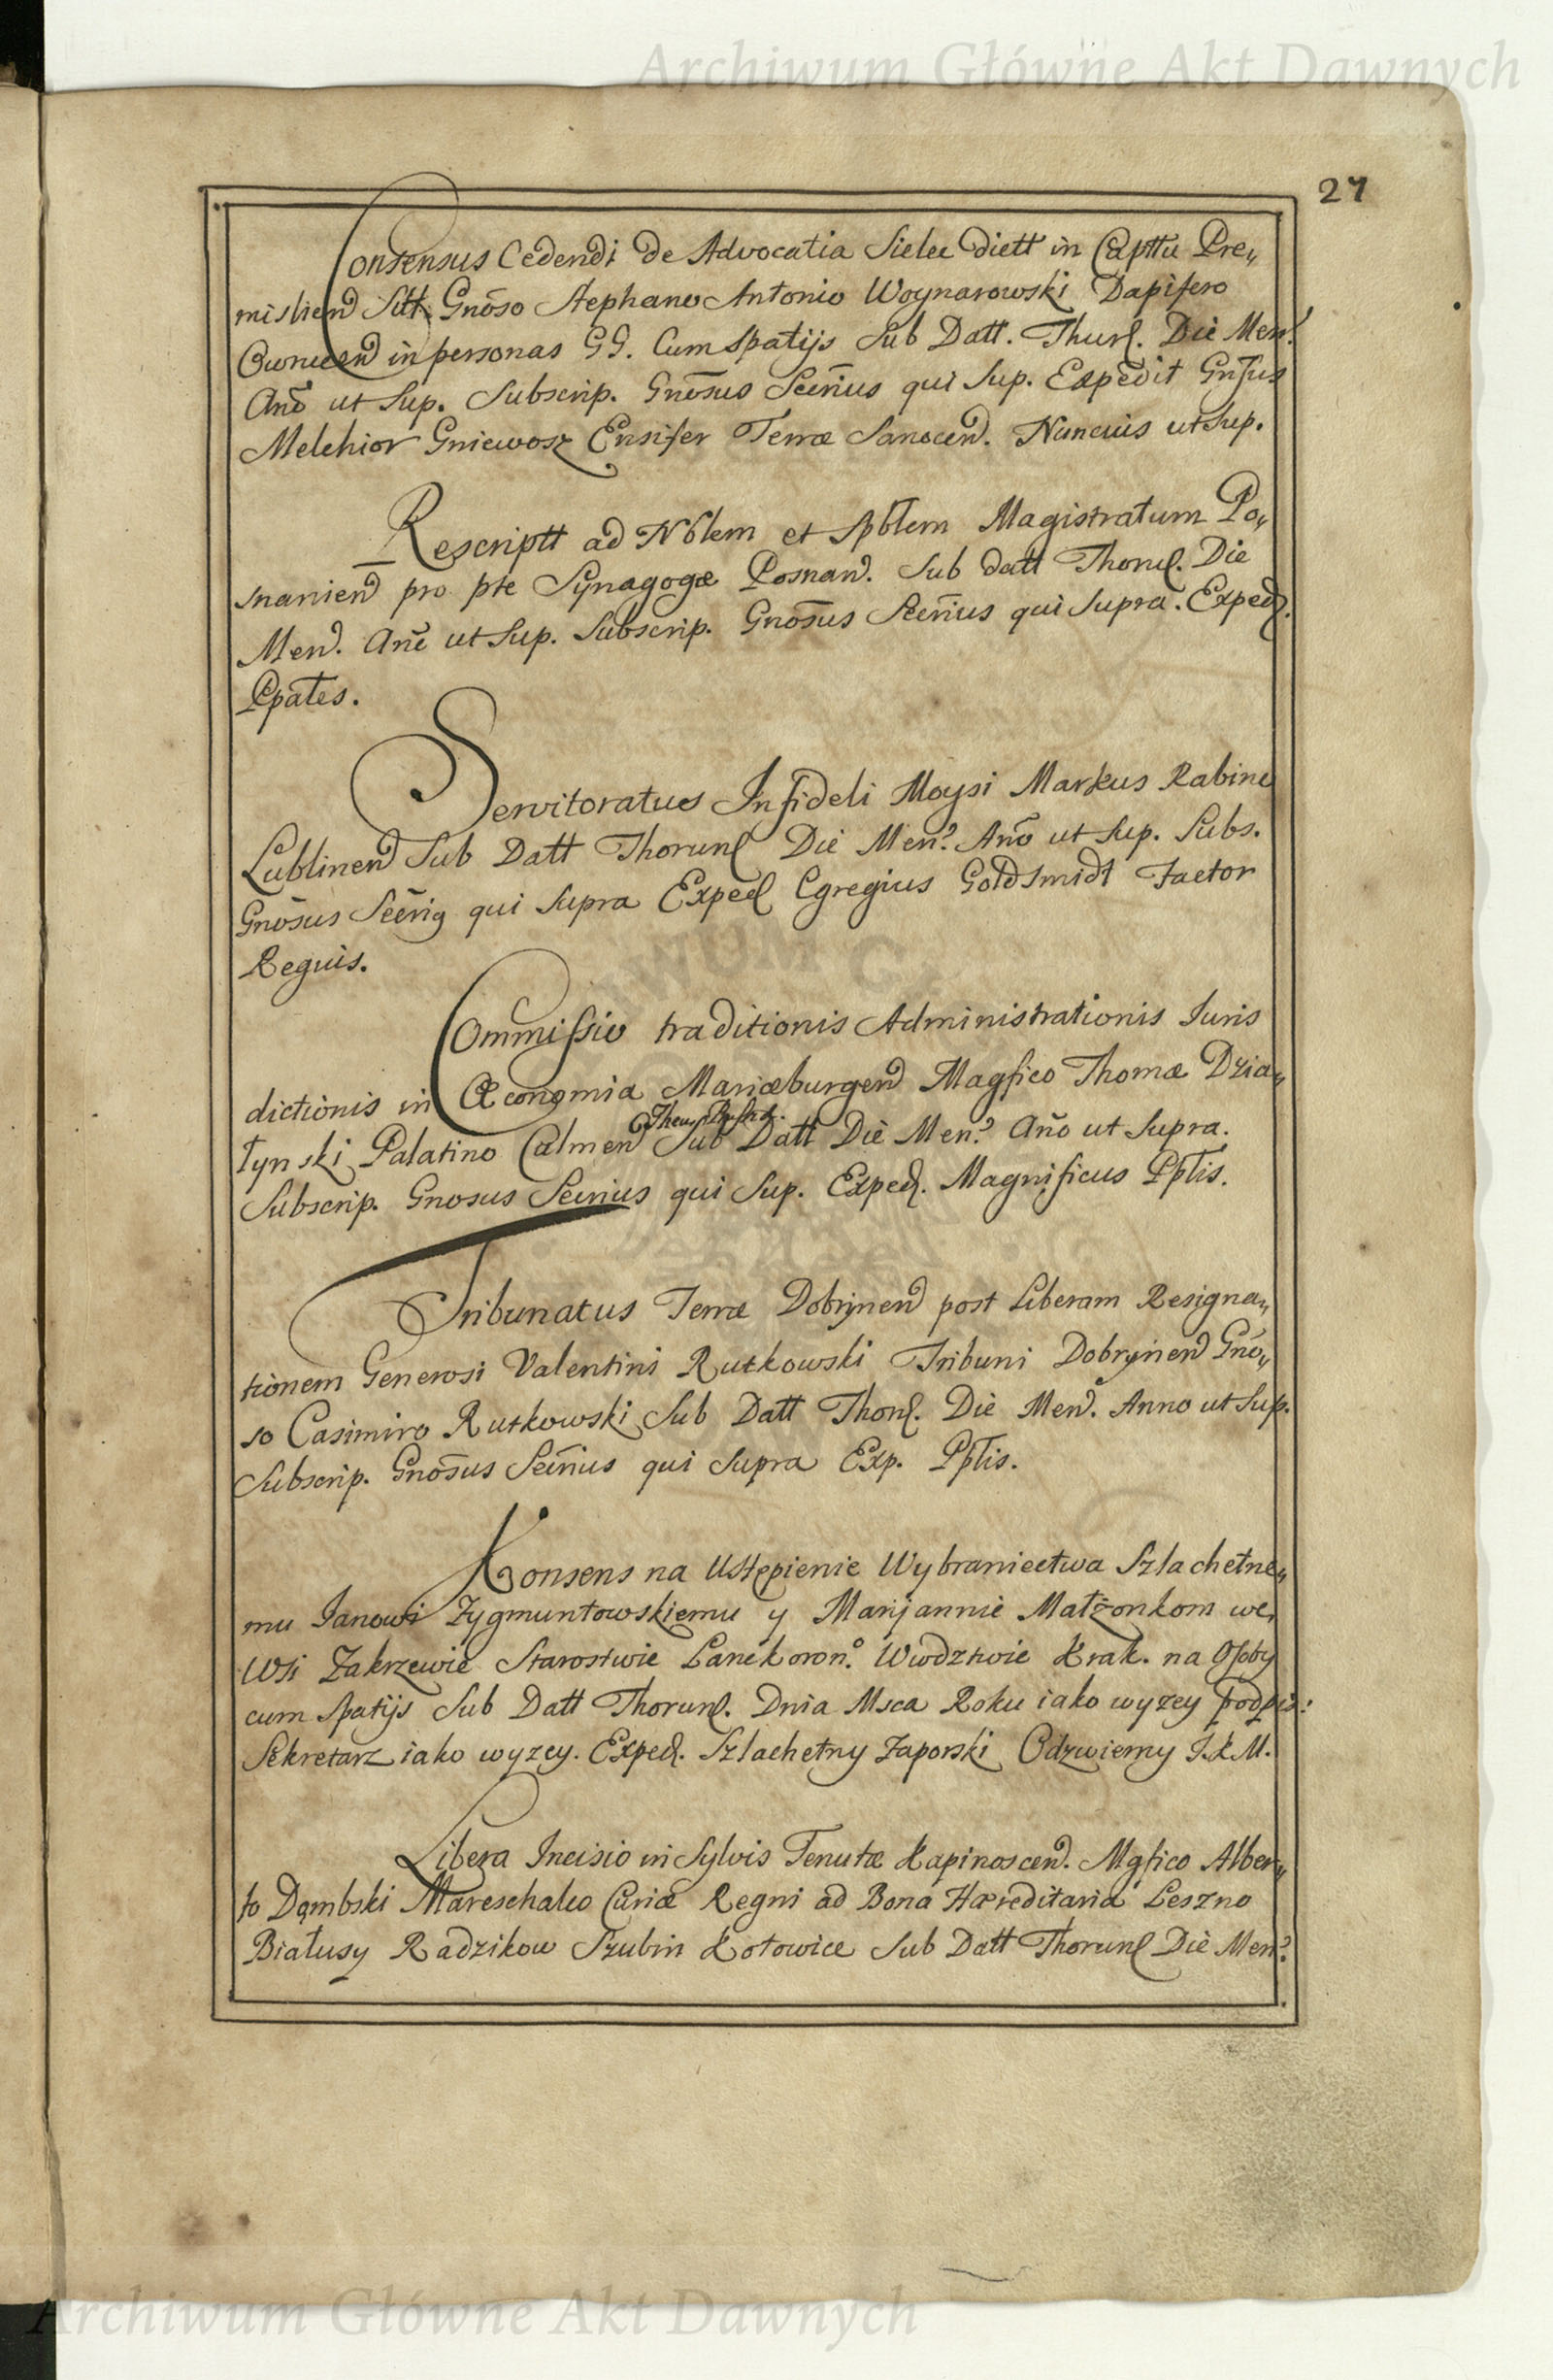 Archiwum Główne Akt Dawnych
27
Consensus Cedendi de Advocatia Sielec dictt in Capttu Pre„
mislien̄ Sitt Gnōso Stephano Antonio Woynarowski Dapifero
Owrucen̄ in personas GG. Cum Spatijs Sub Datt. Thur. Die Men.
Anō ut Sup. Subscrip. Gnōsus Secrius qui Sup. Expedit Gnsus
Melchior Gniewosz Ensifer Terræ Sanocen̄. Nuncius ut Sup.
Rescriptt ad Nblem et Spblem Magistratum Po„
snanien̄ pro pte Synagogæ Posnan̄. Sub datt Thorun. Die
Men̄. Anē ut Sup. Subscrip. Gnōsus Secrius qui Supra. Exped.
Ppates.
Servitoratus Infideli Moysi Markus Rabino
Lublinen̄ Sub Datt Thorun Die Men. Anō ut Sup. Subs.
Gnōsus Secrig qui Supra Exped Egregius Goldsmidt Factor
Regius.
Commissio traditionis Administrationis Iuris
dictionis in Œconomia Mariæburgen̄ Magfico Thomæ Dzia„
łynski Palatino Calmen̄ Sub Datt Die Men. Anō ut Supra.
Subscrip. Gnosus Secrius qui Sup. Exped. Magnificus Pptis.
Tribunatus Terræ Dobrinen̄ post Liberam Resigna„
tionem Generosi Valentini Rutkowski Tribuni Dobrynen̄ Gnō„
so Casimiro Rutkowski Sub Datt Thor. Die Men̄. Anno ut Sup.
Subscrip. Gnōsus Secrius qui Supra Exp. Pptis.
Konsens na Ustępienie Wybraniectwa Szlachetne„
mu Janowi Zygmuntowskiemu y Maryjannie Małżonkom we
Wsi Zakrzewie Starostwie Lanckoron. Wwdztwie Krak. na Osoby
cum Spatijs Sub Datt Thorun. Dnia Msca Roku iako wyzey podpis:
Sekretarz iako wyzey. Exped. Szlachetny Zaporski Odzwierny J.K.M.
Libera Incisio in Sylvis Tenutæ Kapinoscen̄. Mgfico Alber„
to Dąmbski Mareschalco Curiæ Regni ad Bona Hæreditaria Leszno
Białusy Radzikow Szubin Kotowice Sub Datt Thorun Die Men.
Archiwum Główne Akt Dawnych